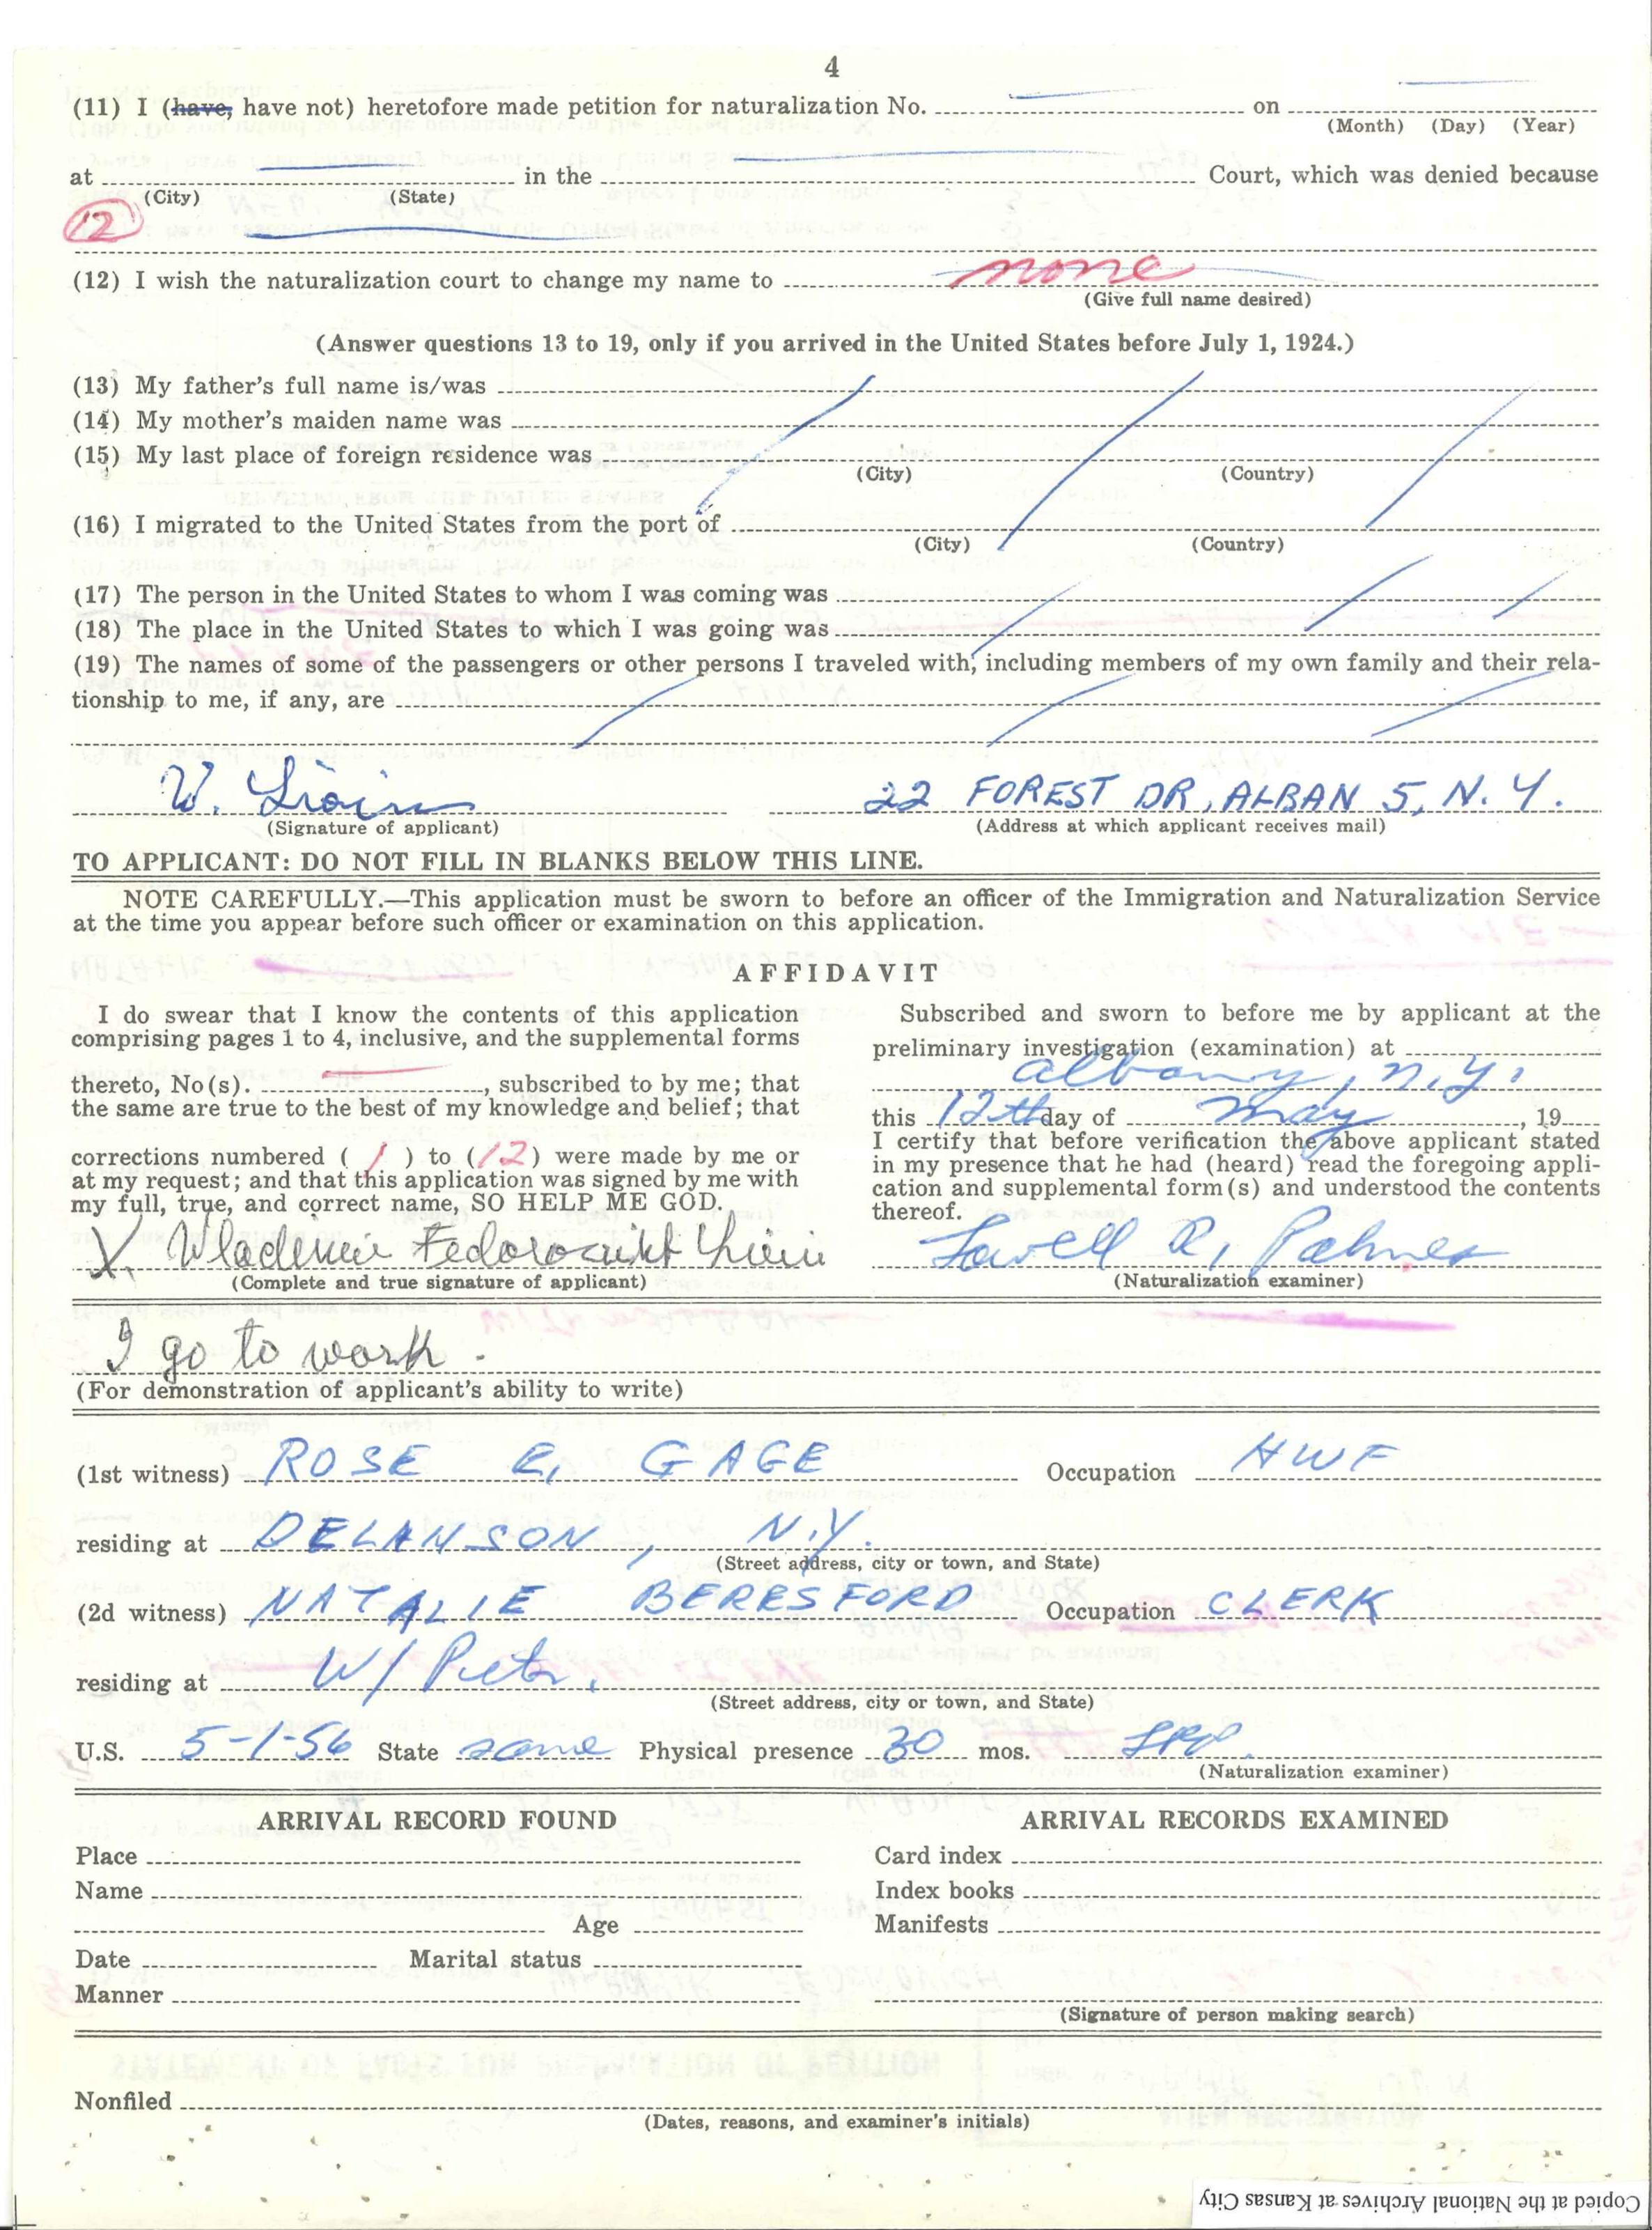 4
(11) I (have, have not) heretofore made petition for naturalization No. on
(Month) (Day) (Year)
at in the Court, which was denied because
(City) (State)
12
(12) I wish the naturalization court to change my name to none
(Give full name desired)
(Answer questions 13 to 19, only if you arrived in the United States before July 1, 1924.)
(13) My father's full name is/was
(14) My mother's maiden name was
(15) My last place of foreign residence was
(City) (Country)
(16) I migrated to the United States from the port of
(City) (Country)
(17) The person in the United States to whom I was coming was
(18) The place in the United States to which I was going was
(19) The names of some of the passengers or other persons I traveled with, including members of my own family and their rela-
tionship to me, if any, are
W. 22 FOREST DR, ALBAN 5, N.Y.
(Signature of applicant) (Address at which applicant receives mail)
TO APPLICANT: DO NOT FILL IN BLANKS BELOW THIS LINE.
NOTE CAREFULLY.—This application must be sworn to before an officer of the Immigration and Naturalization Service
at the time you appear before such officer or examination on this application.
AFFIDAVIT
I do swear that I know the contents of this application
comprising pages 1 to 4, inclusive, and the supplemental forms
thereto, No(s). , subscribed to by me; that
the same are true to the best of my knowledge and belief; that
corrections numbered ( 1 ) to (12) were made by me or
at my request; and that this application was signed by me with
my full, true, and correct name, SO HELP ME GOD.
X
(Complete and true signature of applicant)
Subscribed and sworn to before me by applicant at the
preliminary investigation (examination) at
Albany, N.Y.
this 12th day of May, 19
I certify that before verification the above applicant stated
in my presence that he had (heard) read the foregoing appli-
cation and supplemental form(s) and understood the contents
thereof.
Lowell R. Palmer
(Naturalization examiner)
I go to work.
(For demonstration of applicant's ability to write)
(1st witness) ROSE E. GAGE Occupation HWF
residing at DELANSON, N.Y.
(Street address, city or town, and State)
(2d witness) NATALIE BERESFORD Occupation CLERK
residing at W/ Petr.
(Street address, city or town, and State)
U.S. 5-1-56 State same Physical presence 30 mos. LRP.
(Naturalization examiner)
ARRIVAL RECORD FOUND
Place
Name
Age
Date Marital status
Manner
ARRIVAL RECORDS EXAMINED
Card index
Index books
Manifests
(Signature of person making search)
Nonfiled
(Dates, reasons, and examiner's initials)
Copied at the National Archives at Kansas City